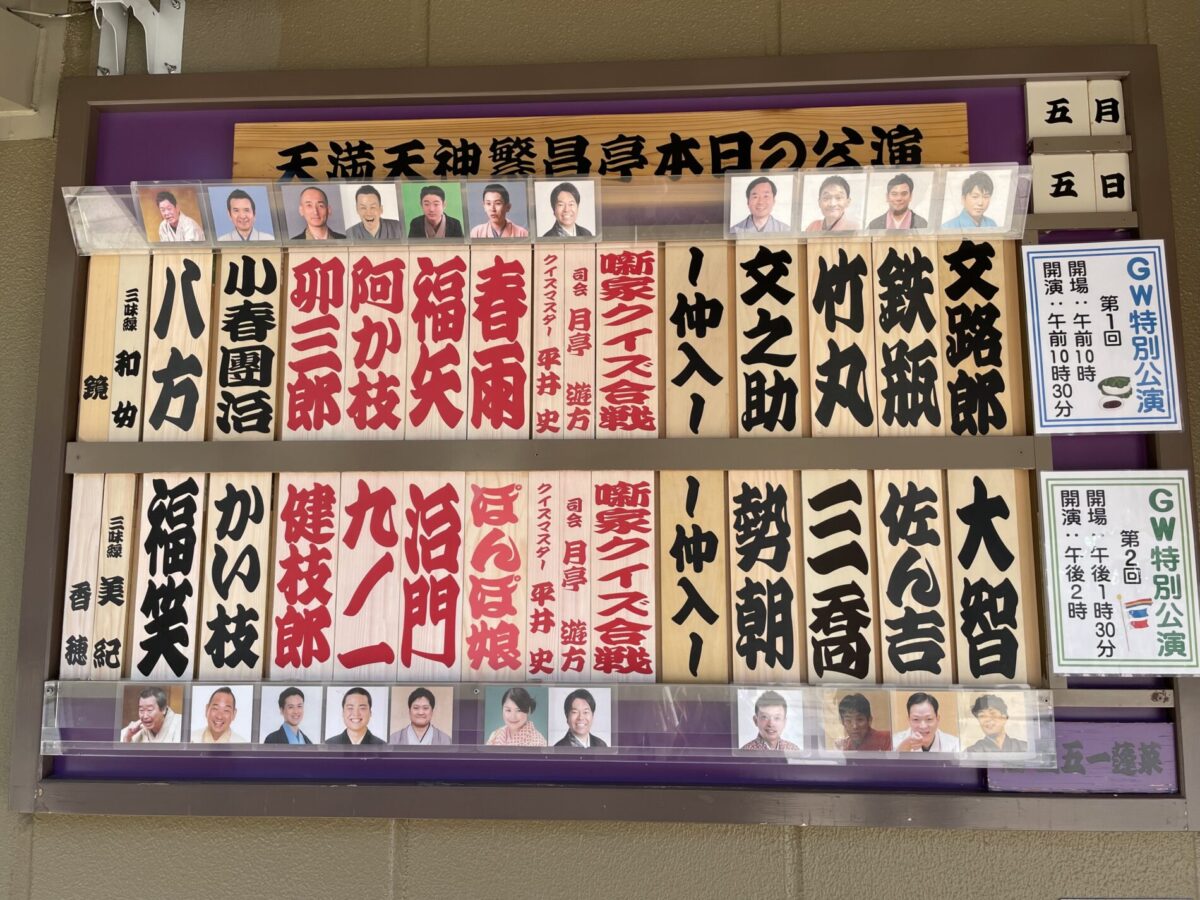 天満天神繁昌亭本日の公演
五月
五日
文路郎
鉄瓶
竹丸
文之助
〜仲入〜
噺家クイズ合戦
司会 月亭 遊方
クイズマスター 平井 史
春雨
福矢
阿か枝
卯三郎
小春團治
八方
三味線 和女
鏡
GW特別公演
第1回
開場：午前10時
開演：午前10時30分
大智
佐ん吉
三一喬
勢朝
〜仲入〜
噺家クイズ合戦
司会 月亭 遊方
クイズマスター 平井 史
ぽんぽ娘
治門
九ノ一
健枝郎
かい枝
福笑
三味線 美紀
香穂
GW特別公演
第2回
開場：午後1時30分
開演：午後2時
五一蓬莱